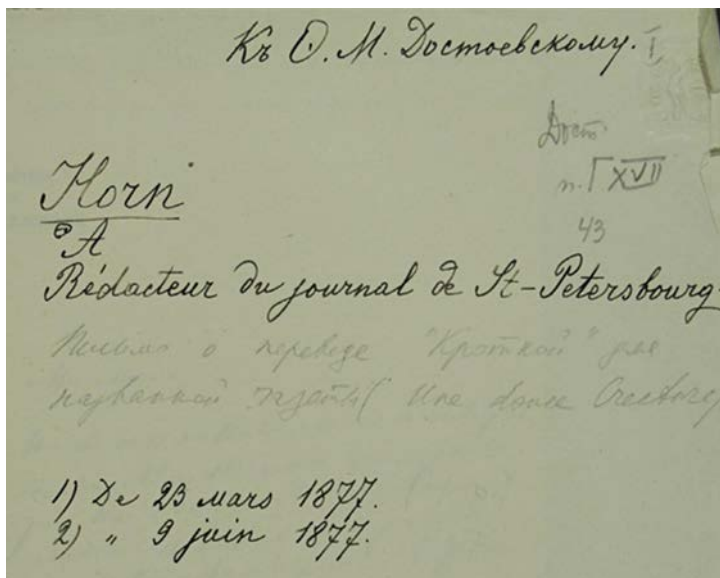 Къ Ѳ. М. Достоевскому. I
Дост
п. Г XVII
43
Horn
A
Rédacteur du journal de St-Petersbourg
Письмо о переводе "Кроткой" для
названной газеты ( Une douce Creature
1) De 23 mars 1877.
2) „ 9 juin 1877.